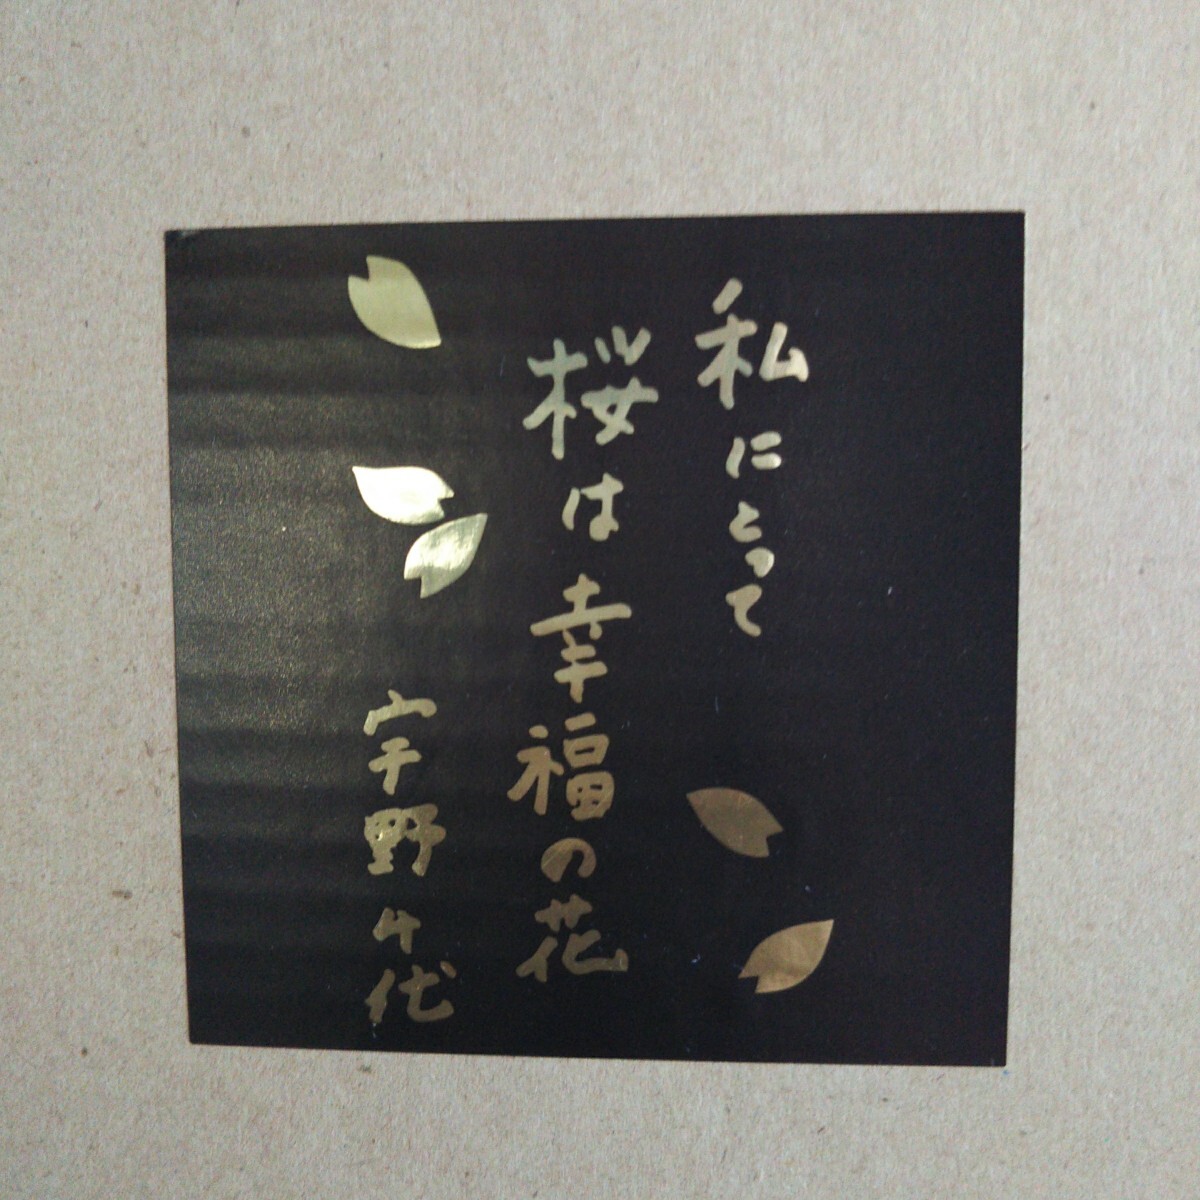 私にとって
桜は幸福の花
宇野千代